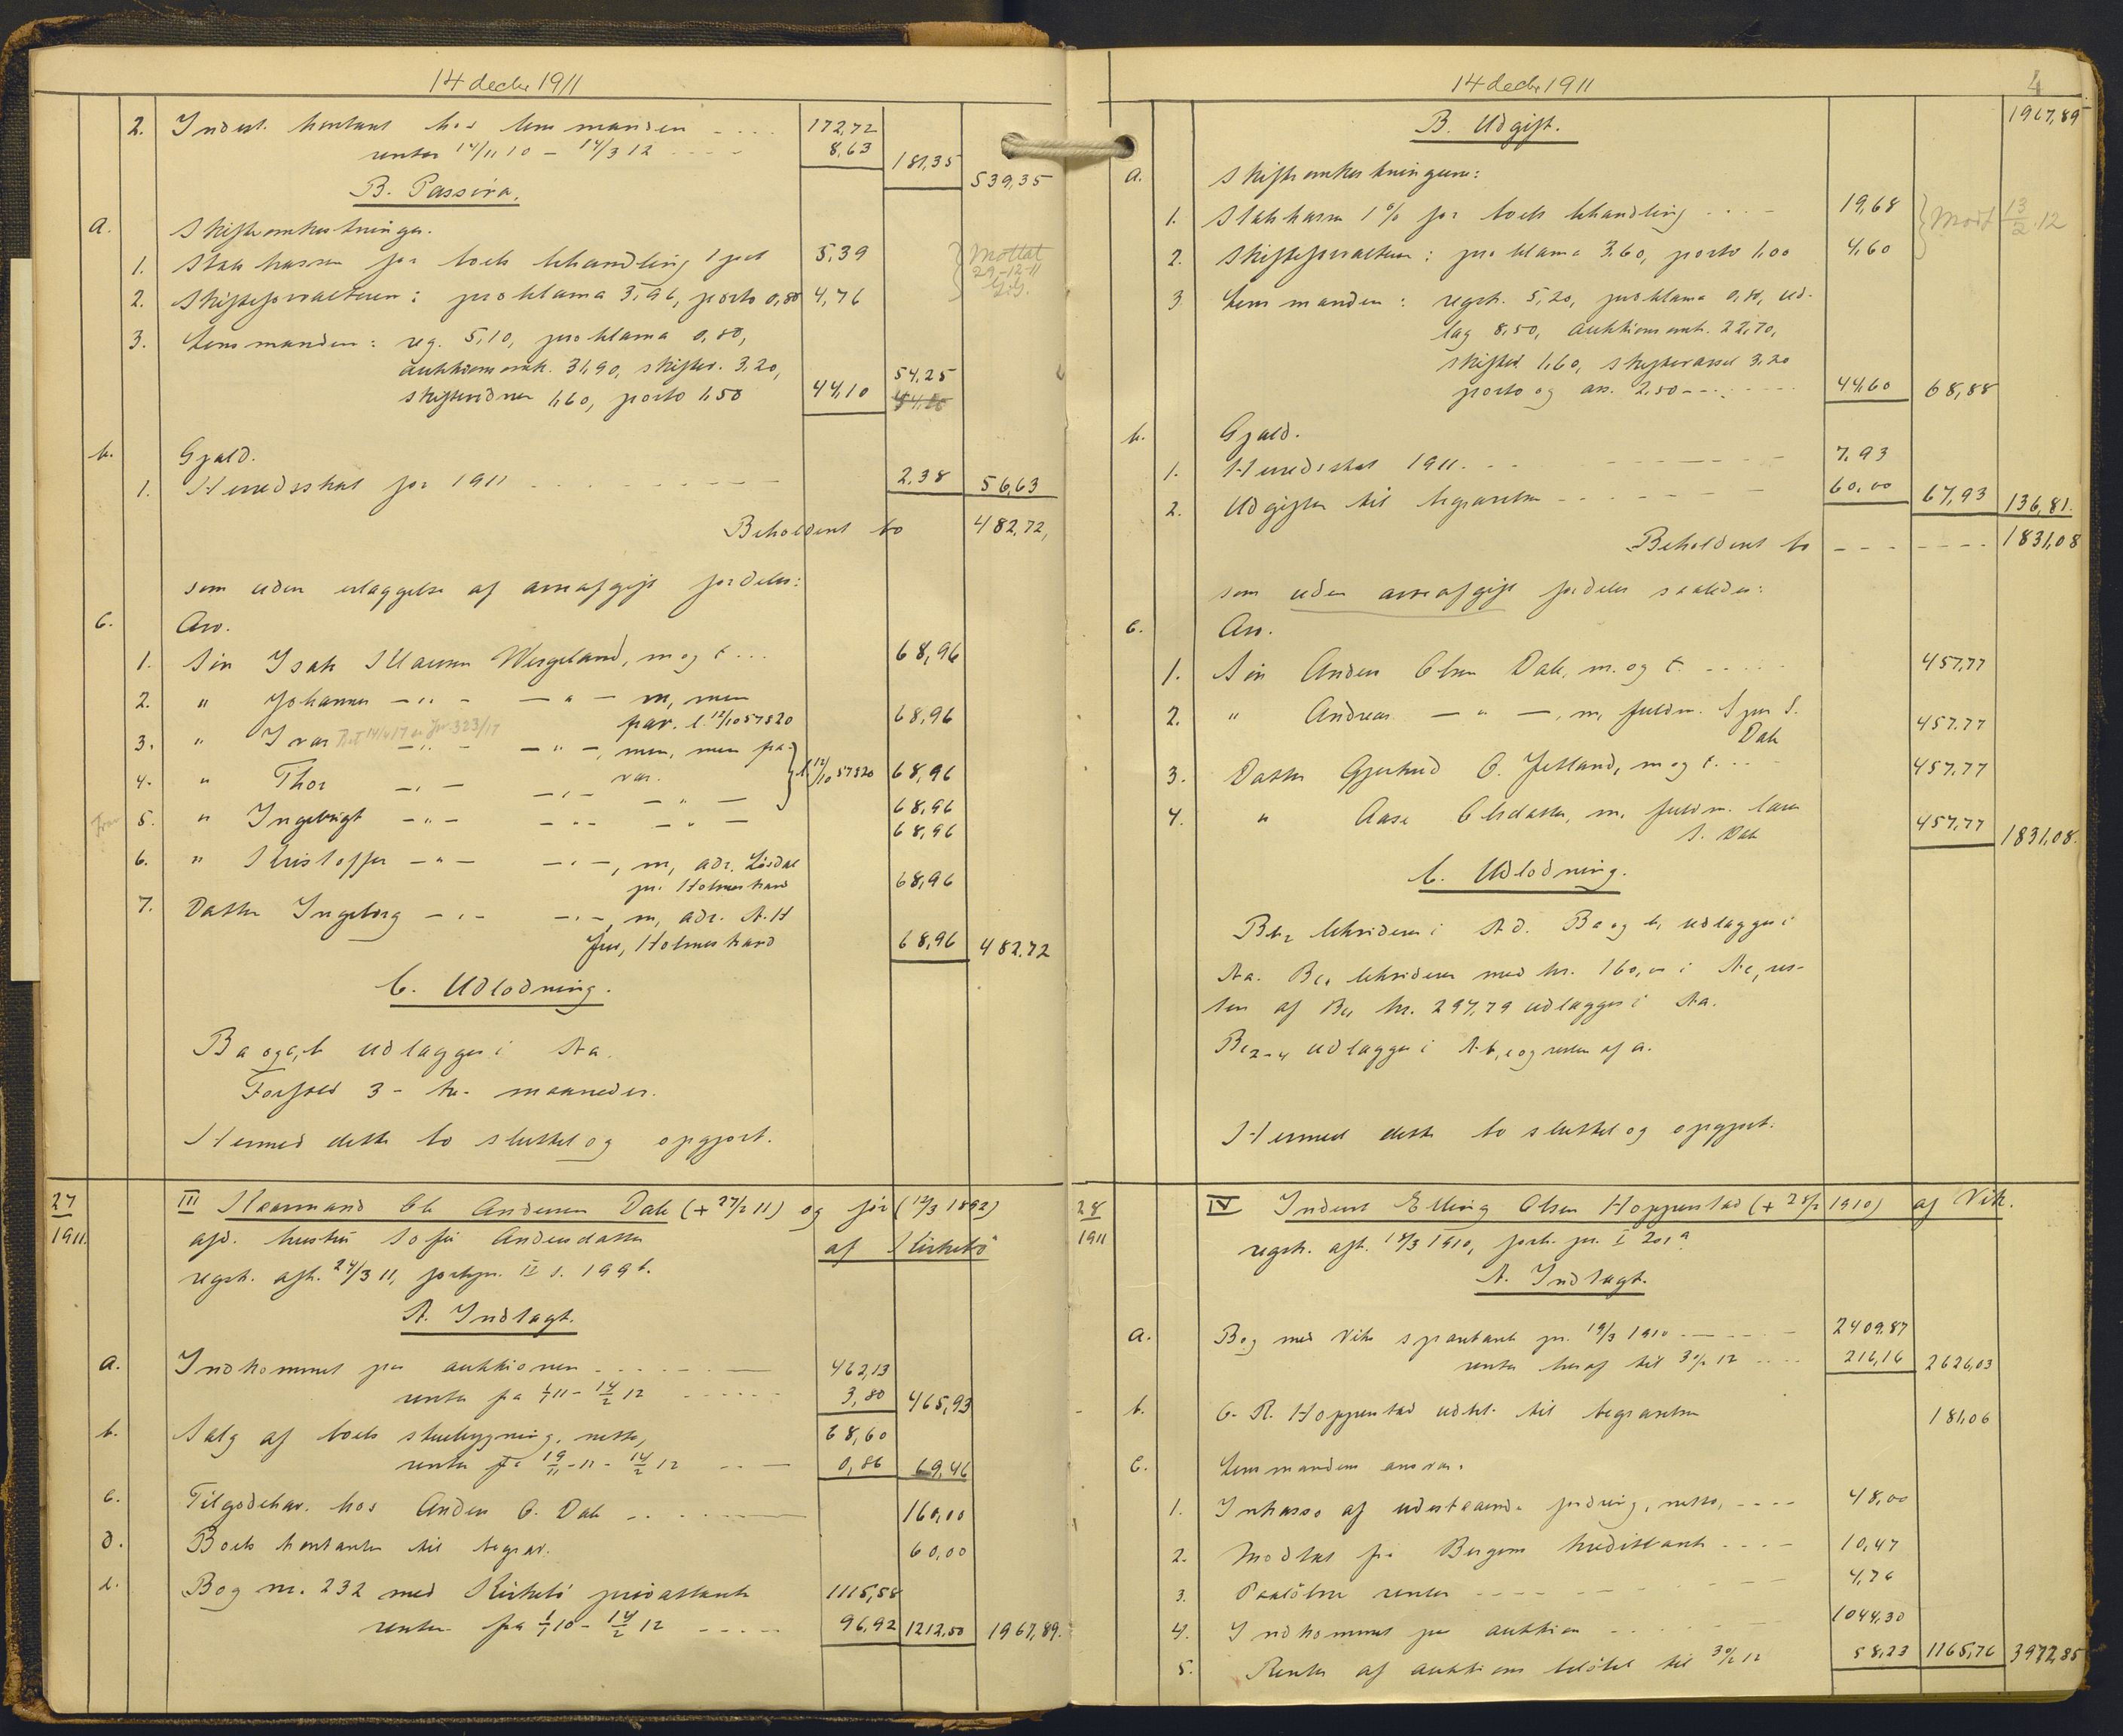 14 decbr 1911
2. Indest. kontant hos lensmanden 172,72
renter 14/11 10 – 14/3 12 8,63 181,35 539,35
B. Passiva.
a. Skifteomkostninger.
1. Statskassen for boets behandling 1 pct 5,39
2. Skifteforvalteren: proklama 3,96, porto 0,80 4,76
Mottat 29-12-11
3. Lensmanden: reg. 5,10, proklama 0,80,
auktionsomk. 31,90, skifter. 3,20, 54,25
skiftevidner 1,60, porto 1,50 44,10
b. Gjæld.
1. Herredsskat for 1911 2,38 56,63
Beholdent bo 482,72,
som uden erlæggelse af arveafgift fordeles:
c. Arv.
1. Søn Isak Wergeland, m og t 68,96
2. " Johannes —"— —"— m, men
par. l. 12/10 57820 68,96
3. " Ivar —"— —"—, men, men fra-
323/17
4. " Thor —"— —"— var. l. 12/10 57820 68,96
68,96
5. " Ingebrigt —"— —"— —"— 68,96
6. " Kristoffer —"— —"—, m, adr. Løsdal
pr. Holmestrand 68,96
7. Datter Ingeborg —"— —"—, m, adr. A. H
Jus, Holmestrand 68,96 482,72
C. Udlodning.
Ba og c, b udlægges i Aa.
Forfald 3 – tre – maaneder.
Hermed dette bo sluttet og opgjort.
27
1911.
III Kaarmand Ole Andersen Dale (+ 27/2 11) og før (12/3 1892)
afd. hustru Sofie Andersdatter af Kirkebø
regstr. afh. 24/3 11, forhpr. II s. 199 b.
A. Indtægt.
a. Indkommet paa auktionen 462,13
renter fra 1/1 11 – 14/2 12 3,80 465,93
b. Salg af boets stuebygning, netto, 68,60
renter fra 19/11 - 11 - 14/2 12 0,86 69,46
c. Tilgodehav. hos Anders O. Dale 160,00
d. Boets kontanter til begrav. 60,00
e. Bog nr. 232 med Kirkebø privatbank 1115,58
renter fra 1/1 10 - 14/2 12 96,92 1212,50 1967,89.
14 decbr 1911
4
B. Udgift. 1967,89
a. Skifteomkostningene:
1. Statskassen 1% for boets behandling 19,68
Modt 13/2.12
2. Skifteforvalteren: proklama 3,60, porto 1,00 4,60
3. Lensmanden: regstr. 5,20, proklama 0,80, ud-
læg 8,50, auktionsomk. 22,70,
skiftev. 1,60, 3,20
porto og an. 2,50 44,60 68,88
b. Gjæld.
1. Herredsskat 1911. 7,93
2. Udgifter til begravelsen 60,00 67,93 136,81.
Beholdent bo 1831,08
som uden arveafgift fordeles saaledes:
c. Arv.
1. Søn Anders Olsen Dale, m. og t. 457,77
2. " Andreas —"—, m, fuldm. Sjur S.
Dale 457.77
3. Datter Gjertrud O. Jetland, m og t. 457,77
4. " Aase Olsdatter, m, fuldm. Lars
S. Dale 457,77 1831,08.
C. Udlodning.
Bb2 bekrideres i Ad. Ba og b1 udlægges i
Aa. Bc1 bekrideres med kr. 160,00 i Ac, res-
ten af Bc1 kr. 297,79 udlægges i Aa.
Bc2-4 udlægges i Ab, e og resten af a.
Hermed dette bo sluttet og opgjort.
28
1911
IV Inderst Elling Olsen Hopperstad (+ 28/2 1910) af Vik.
regstr. afh. 18/3 1910, forh. pr. I 201a
A. Indtægt.
a. Bog med Viks sparebank pr. 19/3 1910 2409,87
renter heraf til 30/2 12 216,16 2626,03
b. O. R. Hopperstad udbet. til begravelsen 181,06
c. Lensmandens ansvar.
1. Inkasso af udestaaende fordring, netto, 48,00
2. Modtat fra Bergens kreditbank 10,47
3. Paaløbne renter 4,76
4. Indkommet paa auktion 1044,30
5. Renter af auktions beløbet til 30/2 12 58,23 1165,76 3972,85